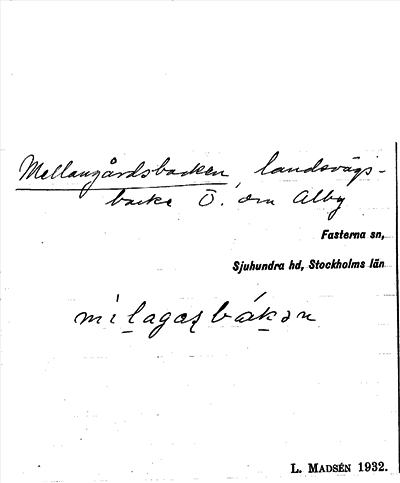 Mellangårdsbacken, landsvägs-
backe Ö. om Alby
Fasterna sn,
Sjuhundra hd, Stockholms län
mìlagaṣbákən
L. MADSÉN 1932.